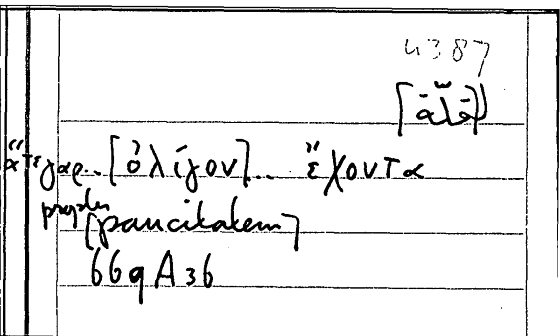 4387
ἅτε γαρ.. [ὀλίγον].. ἔχοντα
propter [paucitatem]
669 A 36